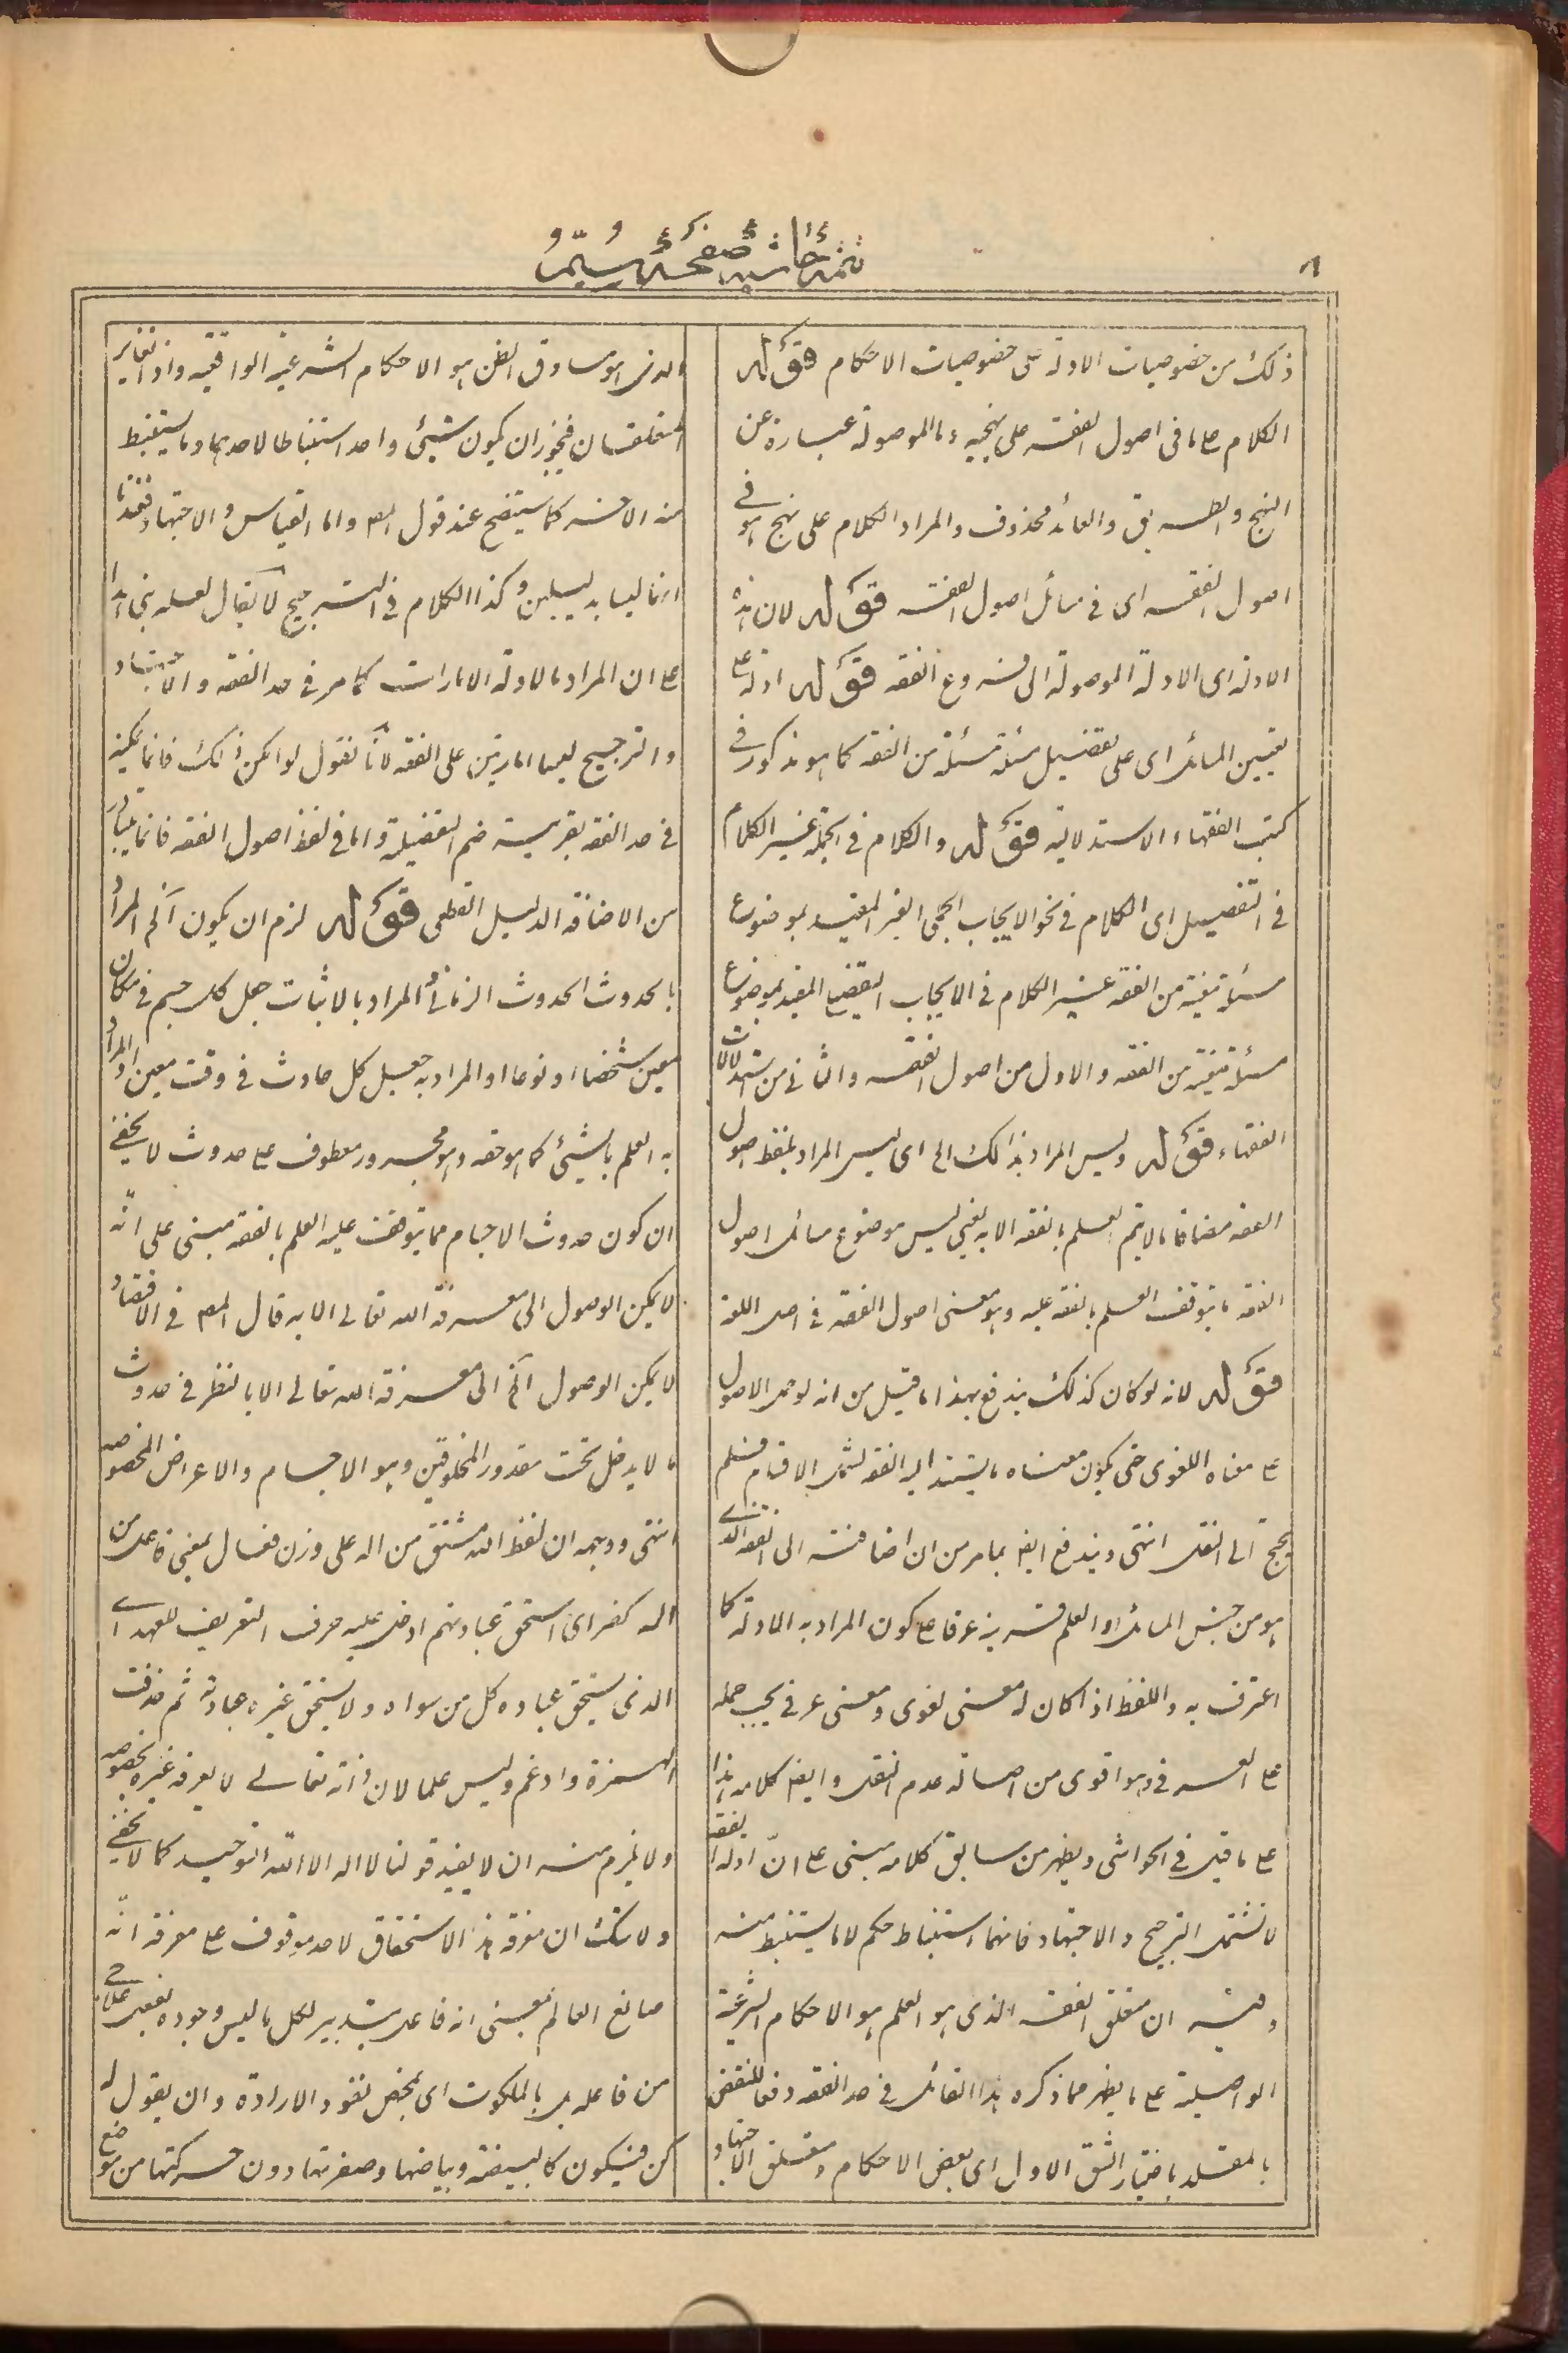 تتمهٔ حاشیهٔ صفحهٔ سیم
٦
ذلك من خصوصيات الادلة على خصوصيات الاحكام قوله
الكلام ع ما فى اصول الفقه على نهجيه وما الموصولة عبارة عن
النهج والطريق والعائد محذوف والمراد الكلام على نهج هو فى
اصول الفقه اى فى مسائل اصول الفقه قوله لان هذه
الادلة اى الادلة الموصولة الى فروع الفقه قوله ادلة ع
تعيين المسائل اى على تفصيل مسئلة مسئلة من الفقه كما هو مذكور فى
كتب الفقهاء الاستدلالية قوله والكلام فى الجملة غير الكلام
فى التفصيل اى الكلام فى نحو الايجاب الجملى الغير المقيد بموضوع
مسئلة معينة من الفقه غير الكلام فى الايجاب التفصيلى المقيد بموضوع
مسئلة معينة من الفقه والاول من اصول الفقه والثانى من استدلالات
الفقهاء قوله وليس المراد بذالك الى اى ليس المراد بلفظ اصول
الفقه مضافا ما لا يتم العلم بالفقه الا به يعنى ليس موضوع مسائل اصول
الفقه ما يتوقف العلم بالفقه عليه وهو معنى اصول الفقه فى اصل اللغة
قوله لانه لو كان كذلك يندفع بهذا ما قيل من انه لو حمل الاصول
ع معناه اللغوى حتى يكون معناه ما يستند اليه الفقه لشمل الاقسام فلم
يحتج الى النقل انتهى ويندفع ايضا بما مر من ان اضافته الى الفقه الذى
هو من جنس المسائل او العلم قرينة عرفا ع كون المراد به الادلة كما
اعترف به واللفظ اذا كان له معنى لغوى ومعنى عرفى يجب حمله
ع العرفى وهو اقوى من اصالة عدم النقل وايضا كلامه هذا
ع ما قيل فى الحواشى ويظهر من سابق كلامه مبنى ع انّ ادلة الفقه
لا تشتمل الترجيح والاجتهاد فانهما استنباط حكم لا ما يستنبط منه
وفيه ان متعلق الفقه الذى هو العلم هو الاحكام الشرعية
الواصلية ع ما يظهر مما ذكره هذا القائل فى حد الفقه دفعا للنقض
بالمقلد باختيار الشق الاول اى بعض الاحكام ومتعلق الاجتهاد
الذى هو مساوق الظن هو الاحكام الشرعية الواقعية واذا تغاير
المتعلقان فيجوز ان يكون شيئ واحد استنباطا لاحدهما وما يستنبط
منه الاخر كما سيتضح عند قول المص واما القياس والاجتهاد فعندنا
انهما ليسا بدليلين وكذا الكلام فى الترجيح لا يقال لعله بنى هذا
ع ان المراد بالادلة الامارات كما مر فى حد الفقه والاجتهاد
والترجيح ليسا امارتين على الفقه لانّا نقول لو امكن ذلك فانما يمكن
فى حد الفقه بقرينة ضم التفصيلية واما فى لفظ اصول الفقه فانما يتبادر
من الاضافة الدليل القطعى قوله لزم ان يكون آلخ المراد
بالحدوث الحدوث الزمانى والمراد بالاثبات جعل كل جسم فى مكان
معين شخصا او نوعا او المراد به جعل كل حادث فى وقت معين او المراد
به العلم بالشيئ كما هو حقه وهو مجرور معطوف ع حدوث لا يخفى
ان كون حدوث الاجسام مما يتوقف عليه العلم بالفقه مبنى على انّه
لا يمكن الوصول الى معرفة الله تعالى الا به قال المص فى الاقتصاد
لا يمكن الوصول آلخ الى معرفة الله تعالى الا بالنظر فى حدوث
ما لا يدخل تحت مقدور المخلوقين وهو الاجسام والاعراض المخصوصه
انتهى ووجهه ان لفظ الله مشتق من اله على وزن فعال بمعنى فاعل من
اله كنصر اى استحق عبادتهم ادخل عليه حرف التعريف للعهد اى
الذى يستحق عبادة كل من سواه ولا يستحق غيره عبادته ثم حذفت
الهمزة وادغم وليس علما لان ذاته تعالى لا يعرفه غيره بخصوصه
ولا يلزم منه ان لا يفيد قولنا لا اله الا الله التوحيد كما لا يخفى
ولا شك ان معرفة هذا الاستحقاق لاحد موقوف ع معرفة انّه
صانع العالم بمعنى انه فاعل بتدبير لكل ما ليس وجوده بفعل علاجى
من فاعله بل بالملكوت اى بمحض نفوذ الارادة وان يقول له
كن فيكون كالبيضة وبياضها وصفرتها دون حركتها من موضع